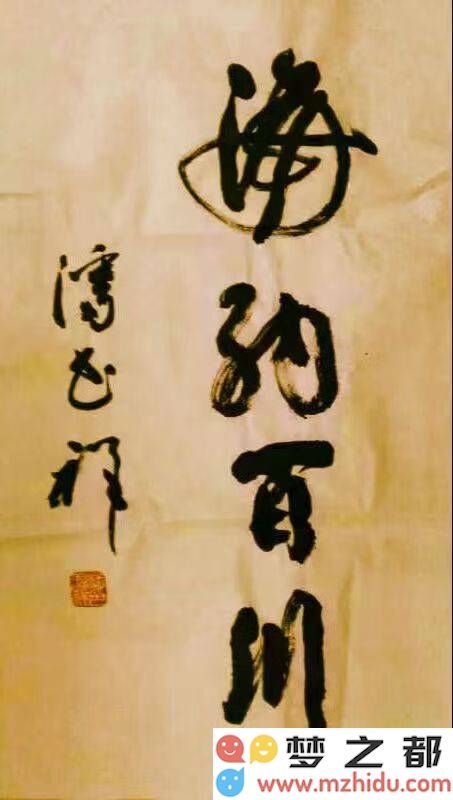 海纳百川
梦之都
www.mzhidu.com